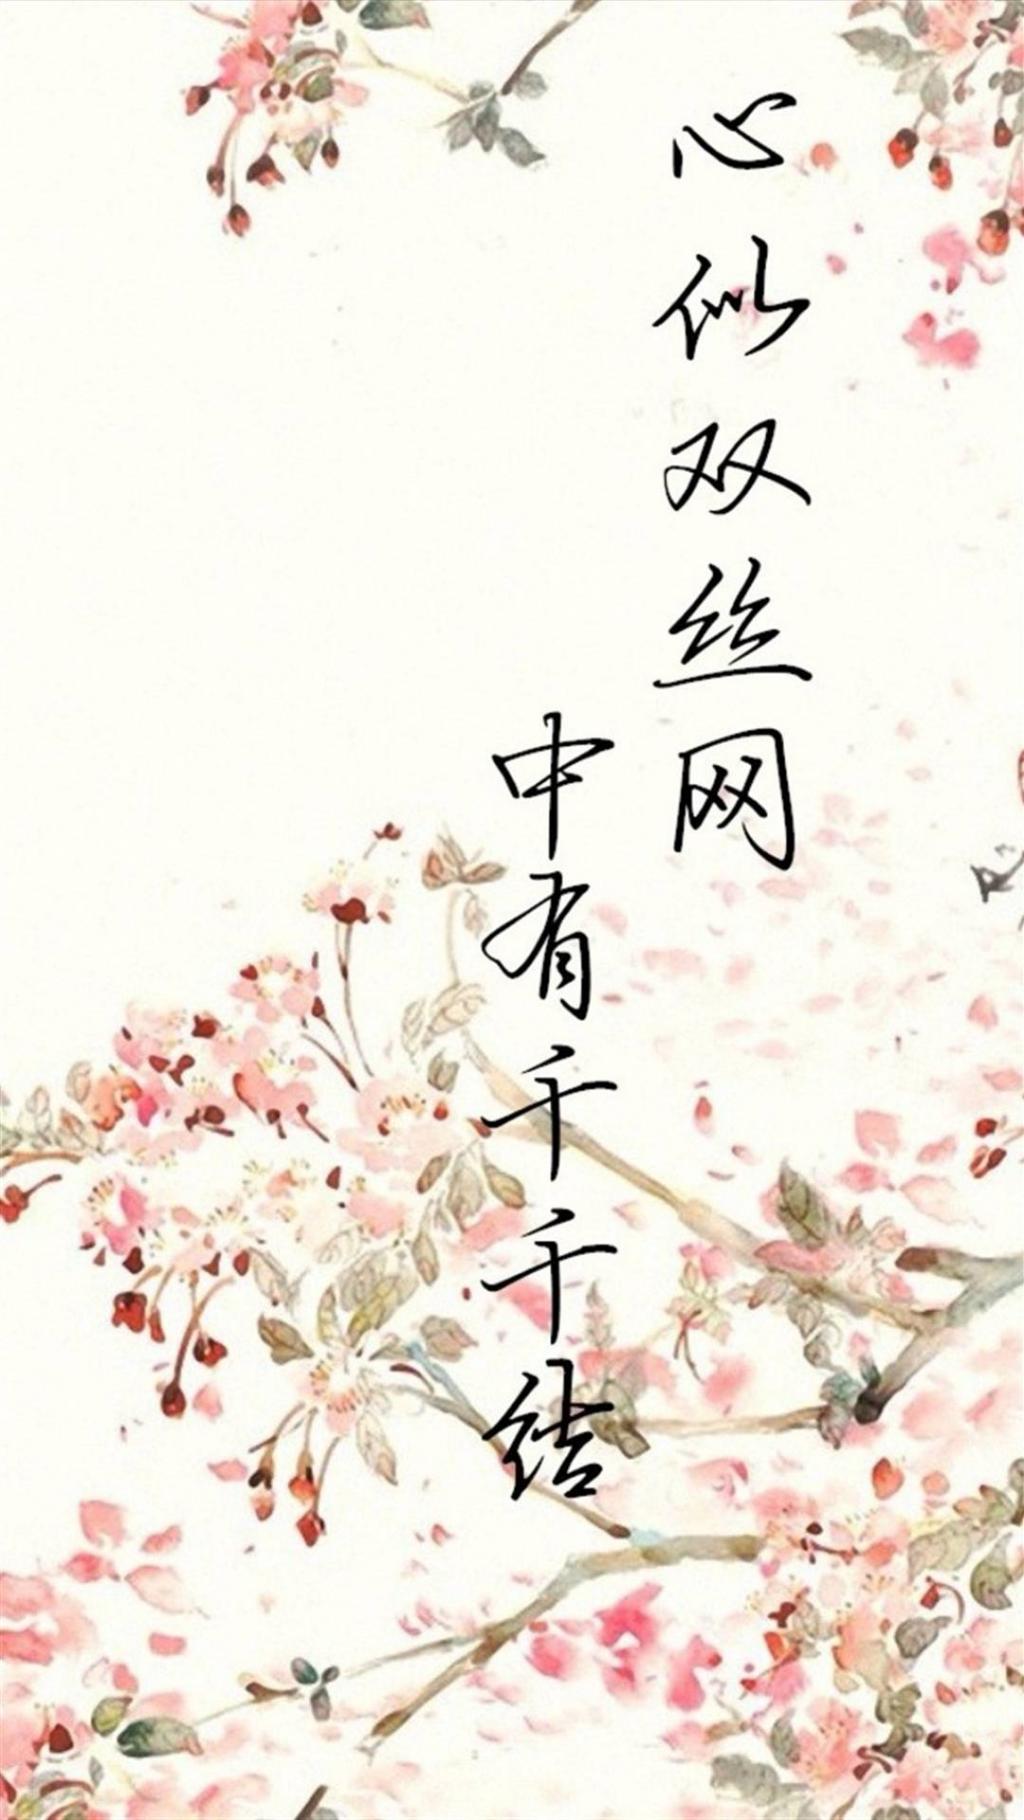 心似双丝网
中有千千结